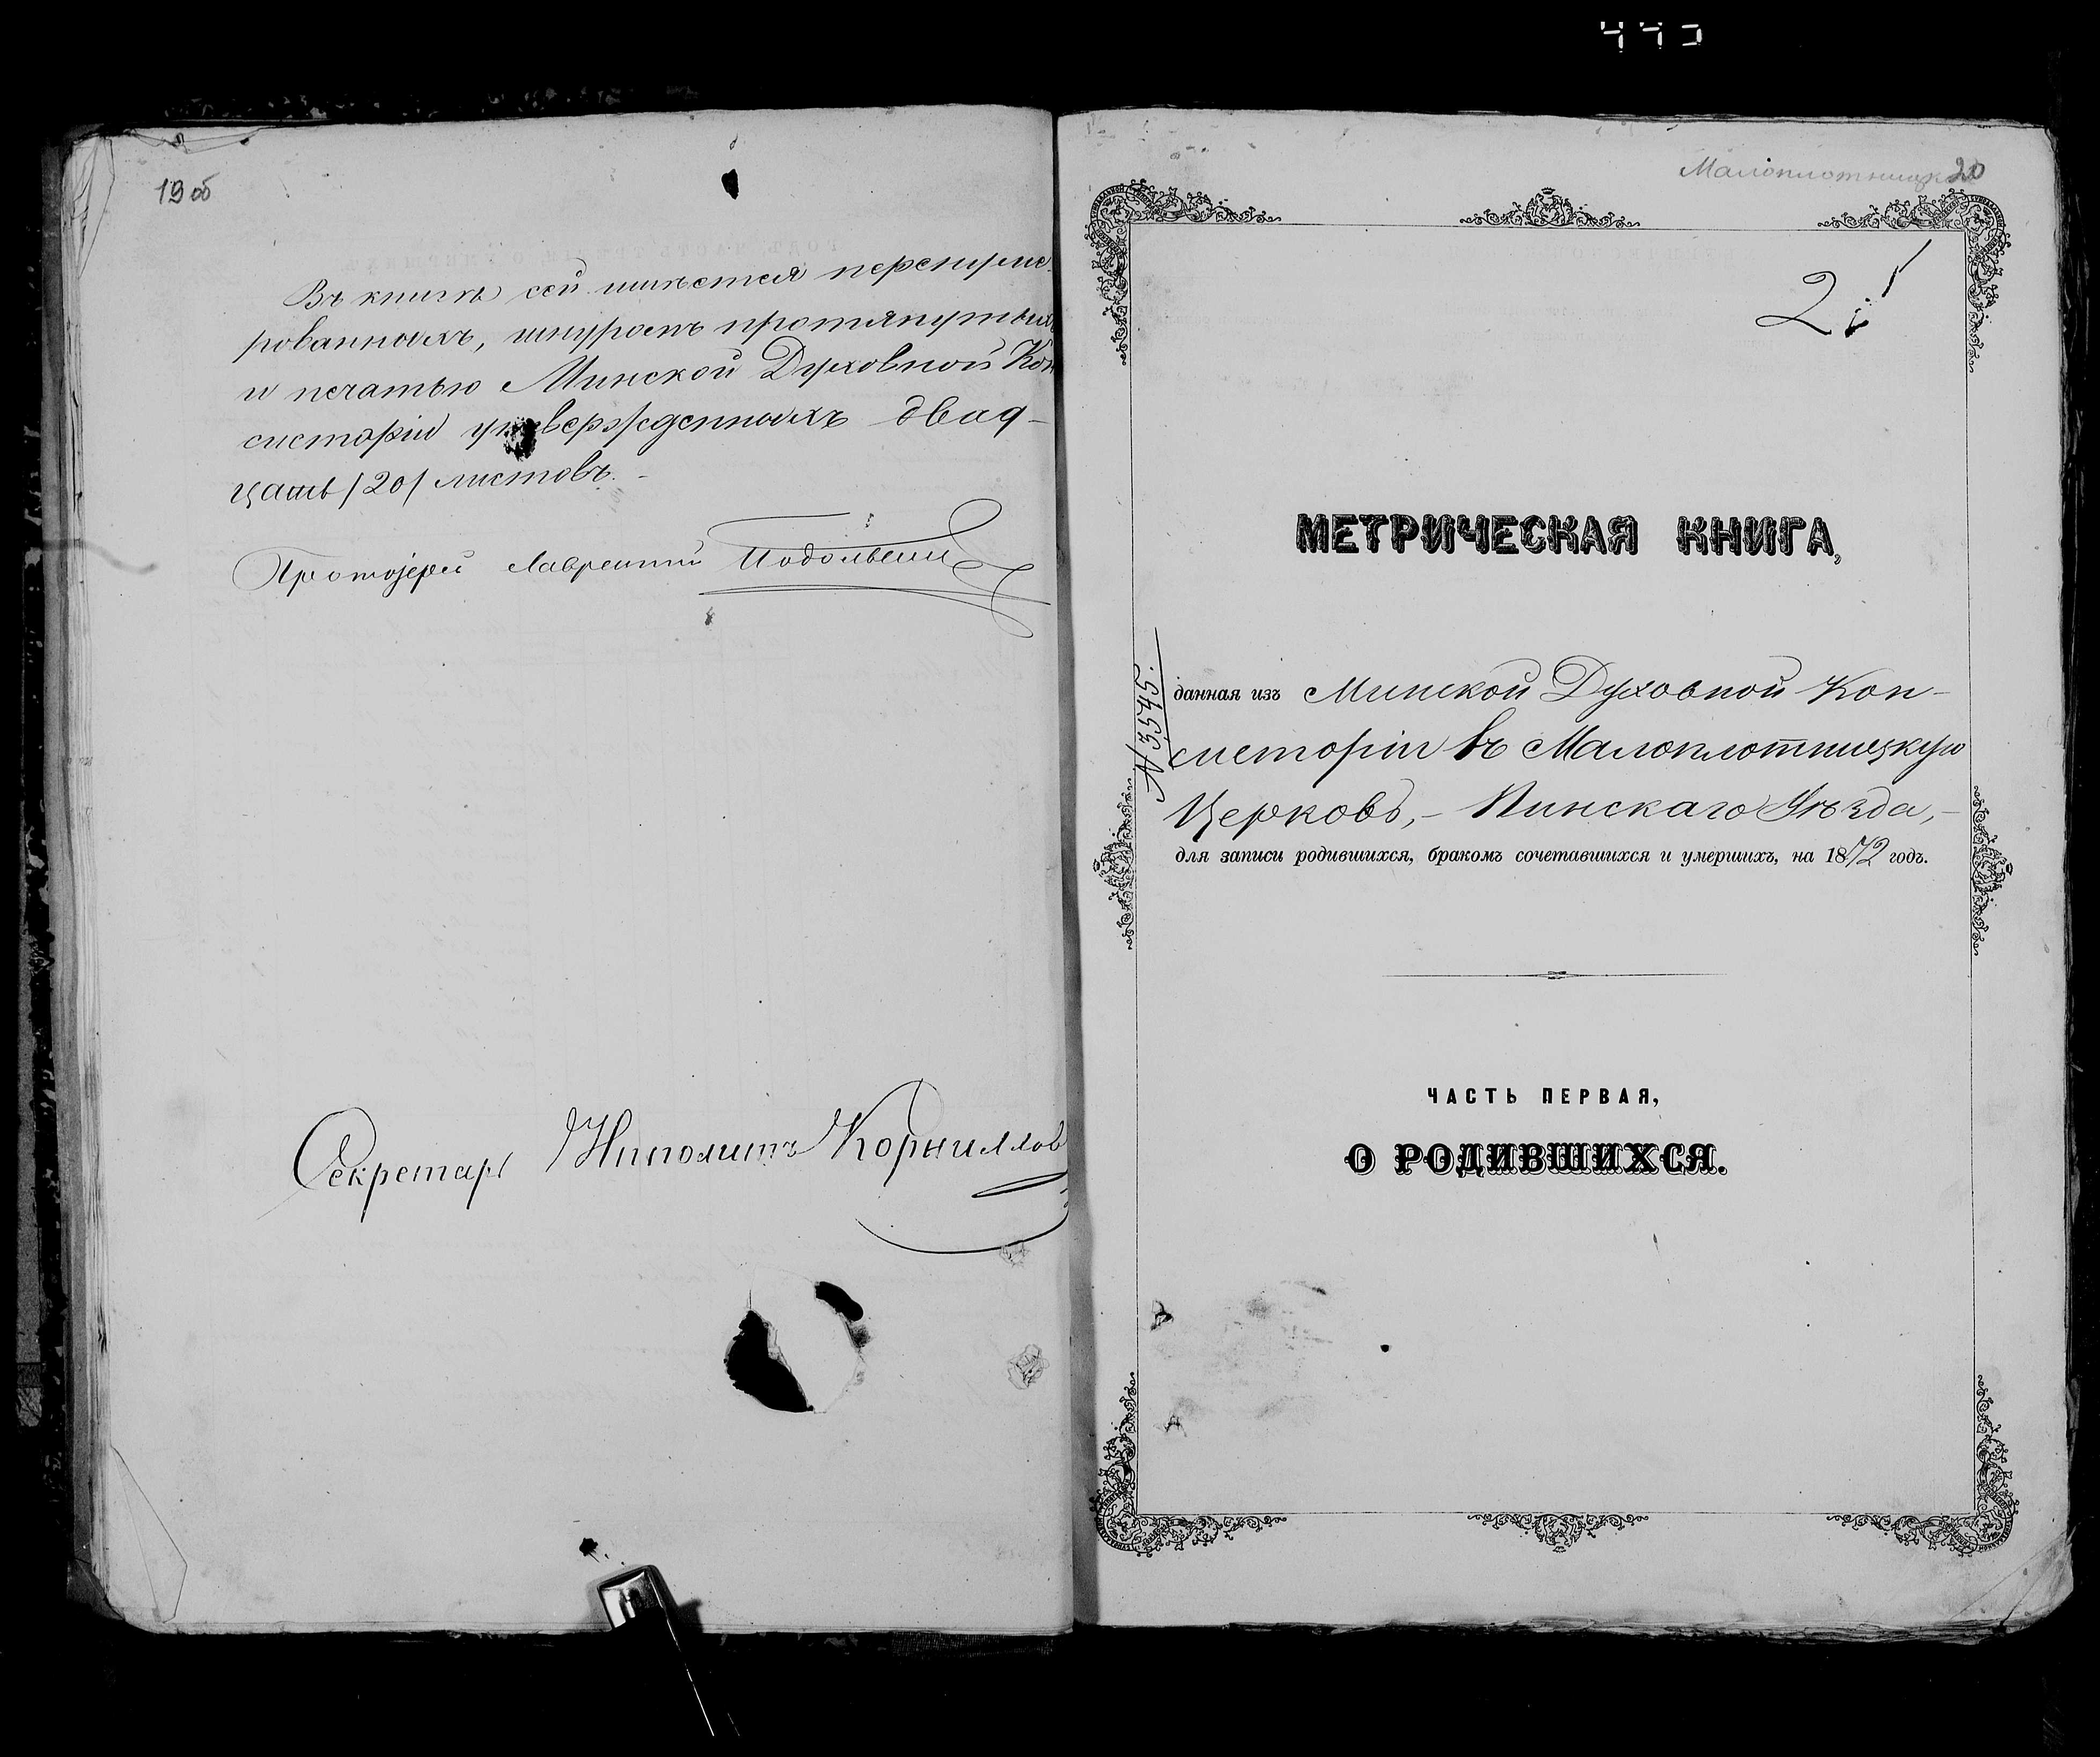 19 об
Въ книгѣ сей имѣется перенуме-
рованныхъ, шнуромъ протянутыхъ
и печатью Минской Духовной Кон
систоріи утвержденныхъ двад-
цать /20/ листовъ.-
Протоіерей Лаврентій
Секретарь Ипполитъ Корниллов
Малоплотницкая
20
2
МЕТРИЧЕСКАЯ КНИГА,
№ 3545.
данная изъ Минской Духовной Кон-
систоріи въ Малоплотницкую
Церковь,- Пинскаго Уѣзда,-
для записи родившихся, бракомъ сочетавшихся и умершихъ, на 1872 годъ.
ЧАСТЬ ПЕРВАЯ,
О РОДИВШИХСЯ.